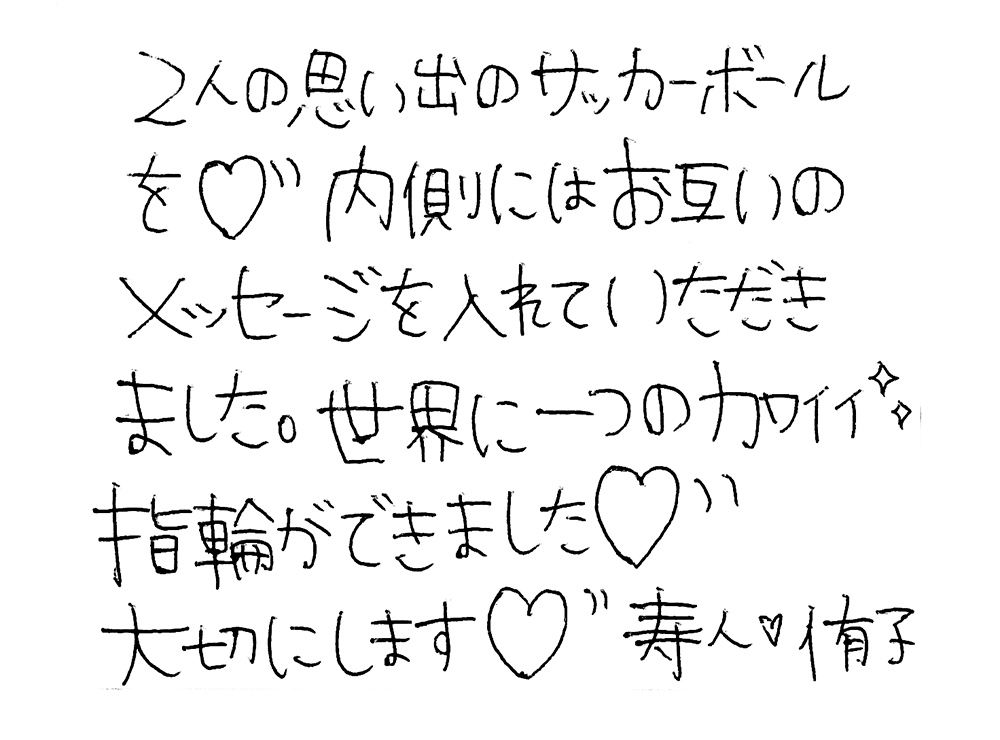 2人の思い出のサッカーボール
を♡〃内側にはお互いの
メッセージを入れていただき
ました。世界に一つのカワイイ✧✧
指輪ができました♡〃
大切にします♡〃寿人♡侑子